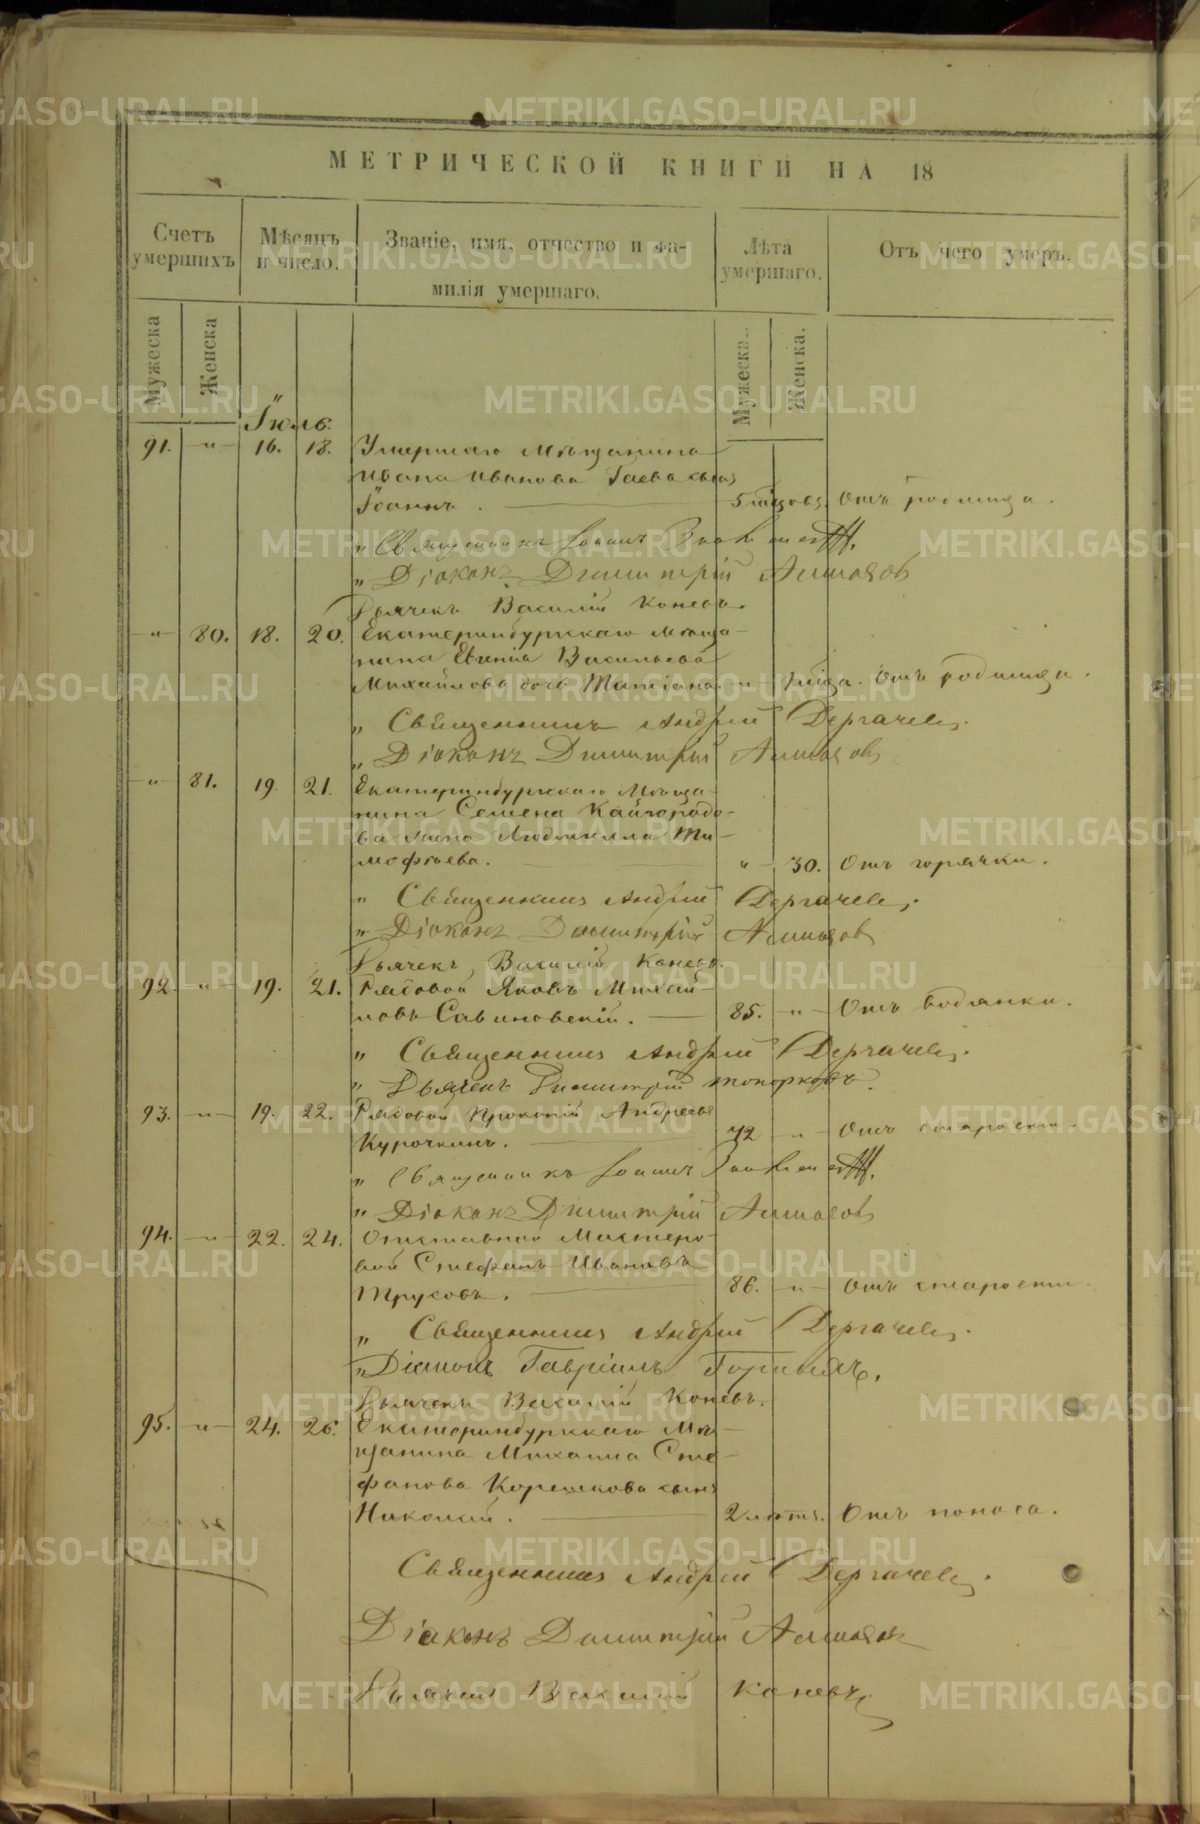 МЕТРИЧЕСКОЙ КНИГИ НА 18
Счетъ умершихъ
Мѣсяцъ и число.
Званіе, имя, отчество и фамилія умершаго.
Лѣта умершаго.
Отъ чего умеръ.
Мужеска
Женска
Мужеска.
Женска.
Іюль.
91. " 16. 18. Умершаго Мѣщанина
Ивана Иванова Гаева сынъ
Іоаннъ. 5 мѣсяцов. Отъ родимца.
" Священникъ Іоаннъ
" Діаконъ Димитрій
Дьячекъ Василій Коневъ.
" 80. 18. 20. Екатеринбургскаго Мѣща-
нина Евгенія Васильева
Михайлова дочь Татіана. " Отъ родимца.
" Священникъ Андрей Дергачевъ.
" Діаконъ Димитрій
" 81. 19. 21. Екатеринбургскаго Мѣща-
нина Семена Кайгородо-
ва жена Людмилла Ти-
мофѣева. " 30. Отъ горячки.
" Священникъ Андрей Дергачевъ.
" Діаконъ Димитрій
Дьячекъ Василій Коневъ.
92. " 19. 21. Рядовой Яковъ Михай-
ловъ Савиновскій. 85. " Отъ водянки.
" Священникъ Андрей Дергачевъ.
" Дьячекъ Димитрій Топорковъ.
93. " 19. 22. Рядовой Прокопій Андреевъ
Курочкинъ. 72 " Отъ старости.
" Священникъ Іоаннъ
" Діаконъ Димитрій
94. " 22. 24. Отставной Мастеро-
вой Стефанъ Ивановъ
Трусовъ. 86. " Отъ старости.
" Священникъ Андрей Дергачевъ.
" Діаконъ Гавріилъ
Дьячекъ Василій Коневъ.
95. " 24. 26. Екатеринбургскаго Мѣ-
щанина Михаила Сте-
фанова Корешкова сынъ
Николай. 2 лѣтъ. Отъ поноса.
Священникъ Андрей Дергачевъ.
Діаконъ Димитрій
Дьячекъ Василій Коневъ.
METRIKI.GASO-URAL.RU